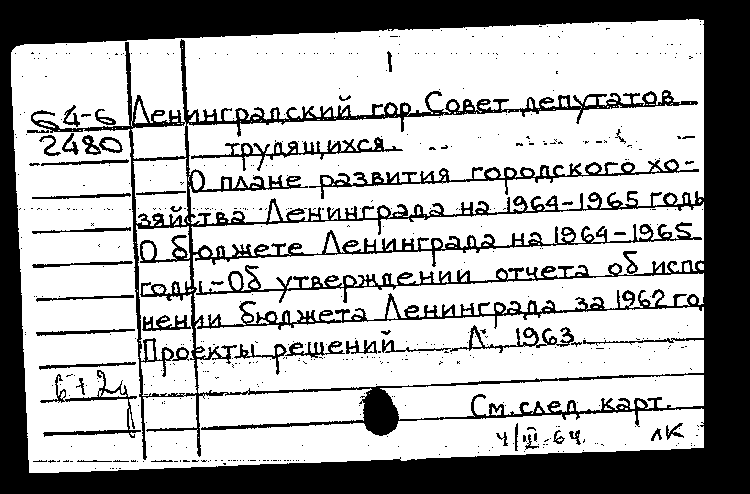 1
64-6 Ленинградский гор. Совет депутатов
2480 трудящихся.
О плане развития городского хо-
зяйства Ленинграда на 1964-1965 годы
О бюджете Ленинграда на 1964-1965
годы.-Об утверждении отчета об испо
нении бюджета Ленинграда за 1962 го
Проекты решений. Л., 1963.
6+2д
См. след. карт.
4/III-64. ЛК